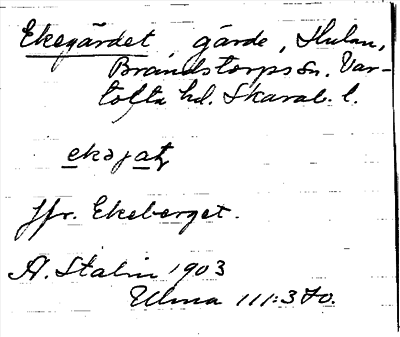 Ekegärdet, gärde, Hulan,
Brandstorps sn. Var-
tofta hd. Skarab. l.
ekəjaʈ
Jfr. Ekeberget.
A. Stalin 1903
Ulma 111:3 fo.